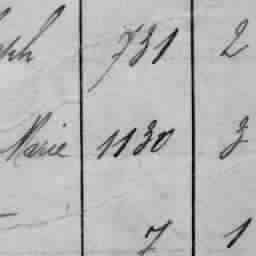 seph 731 2
Marie 1130 3
7 1